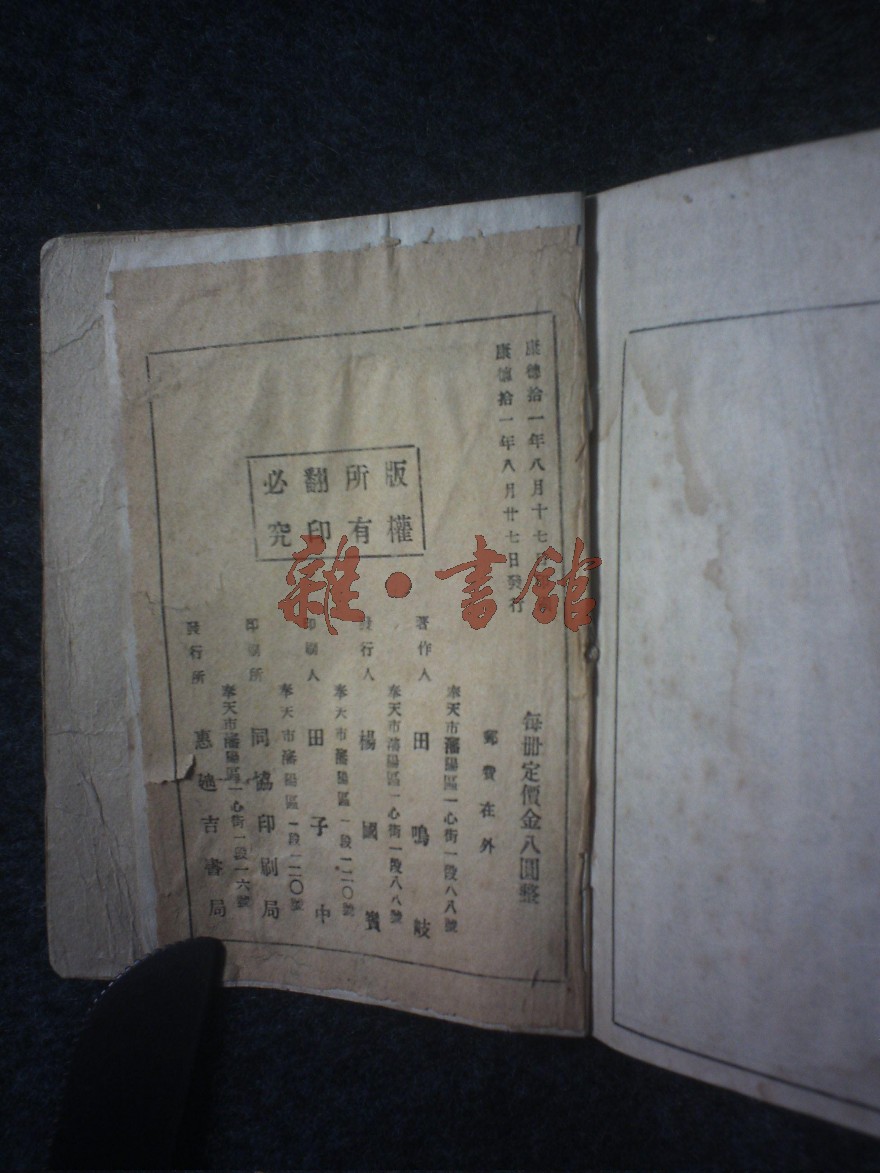 康德拾一年八月十七日
康德拾一年八月廿七日發行
每冊定價金八圓整
郵費在外
版權
所有
翻印
必究
奉天市瀋陽區一心街一段八八號
著作人 田鳴歧
奉天市瀋陽區一心街一段八八號
發行人 楊國賓
奉天市瀋陽區一段一二〇號
印刷人 田子中
奉天市瀋陽區一段一二〇號
印刷所 同協印刷局
奉天市瀋陽區一心街一段一六號
發行所 惠迪吉書局
雜·書館